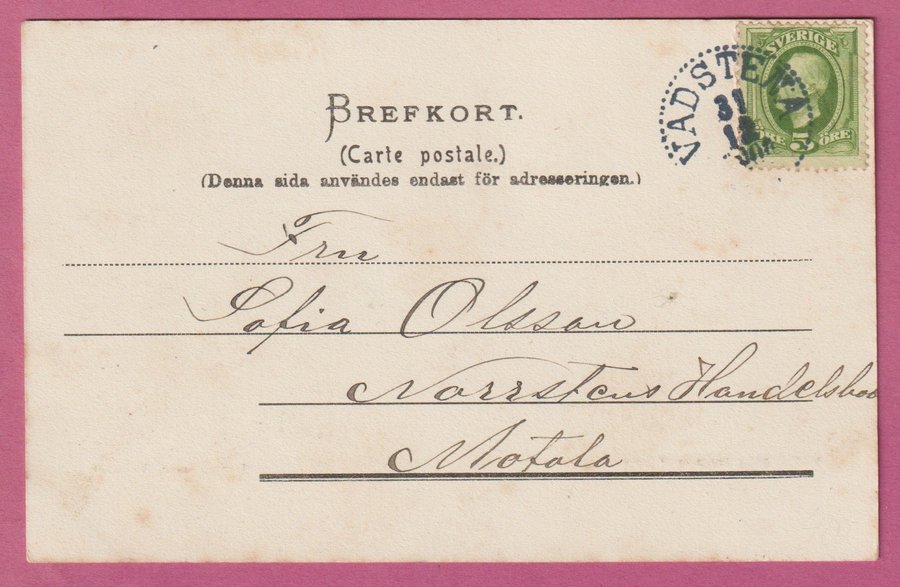 SVERIGE
5 ÖRE
VADSTENA
31
12
BREFKORT.
(Carte postale.)
(Denna sida användes endast för adresseringen.)
Fru
Sofia Olsson
Norrstens Handelsbod
Motala